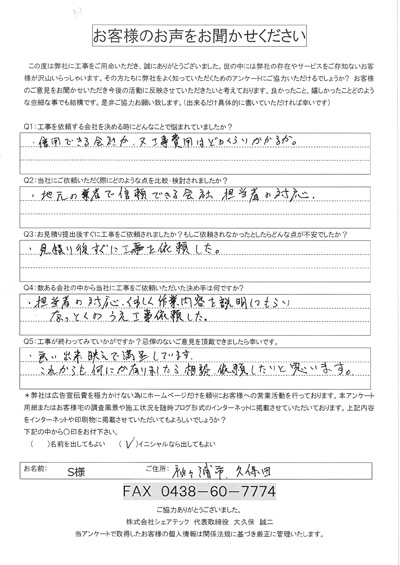 お客様のお声をお聞かせください
この度は弊社に工事をご用命いただき、誠にありがとうございました。世の中には弊社の存在やサービスをご存知ないお客
様が沢山いらっしゃいます。その方たちに弊社をよく知っていただくためのアンケートにご協力いただけるでしょうか? お客様
のご意見をお聞かせいただき今後の活動に反映させていただきたいと考えております。良かったこと、嬉しかったことどのよう
な些細な事でも結構です。是非ご協力お願い致します。(出来るだけ具体的に書いていただければ幸いです)
Q1:工事を依頼する会社を決める時にどんなことで悩まれていましたか?
・信用できる会社か、又工事費用はどのくらいかかるか。
Q2:当社にご依頼いただく際にどのような点を比較・検討されましたか?
・地元の業者で信頼できる会社 担当者の対応。
Q3:お見積り提出後すぐに工事をご依頼されましたか?もしご依頼されなかったとしたらどんな点が不安でしたか?
・見積り後すぐに工事を依頼した。
Q4:数ある会社の中から当社に工事をご依頼いただいた決め手は何ですか?
・担当者の対応、くわしく作業内容を説明してもらい
なっとくのうえ工事依頼した。
Q5:工事が終わってみていかがですか?忌憚のないご意見を頂戴できましたら幸いです。
・良い出来映えで満足しています。
これからも何にかありましたら相談、依頼したいと思います。
*弊社は広告宣伝費を極力かけない為にホームページだけを頼りにお客様への営業活動を行っております。本アンケート
用紙またはお客様宅の調査風景や施工状況を随時ブログ形式のインターネットに掲載させていただいております。上記内容
をインターネットや印刷物に掲載させていただいてもよろしいでしょうか?
下記の中から〇印をお付下さい。
( )名前を出してもよい (✓)イニシャルなら出してもよい
お名前: S様 ご住所: 袖ヶ浦市、久保田
FAX 0438-60-7774
ご協力ありがとうございました。
株式会社シェアテック 代表取締役 大久保 誠二
当アンケートで取得したお客様の個人情報は関係法規に基づき厳正に管理いたします。